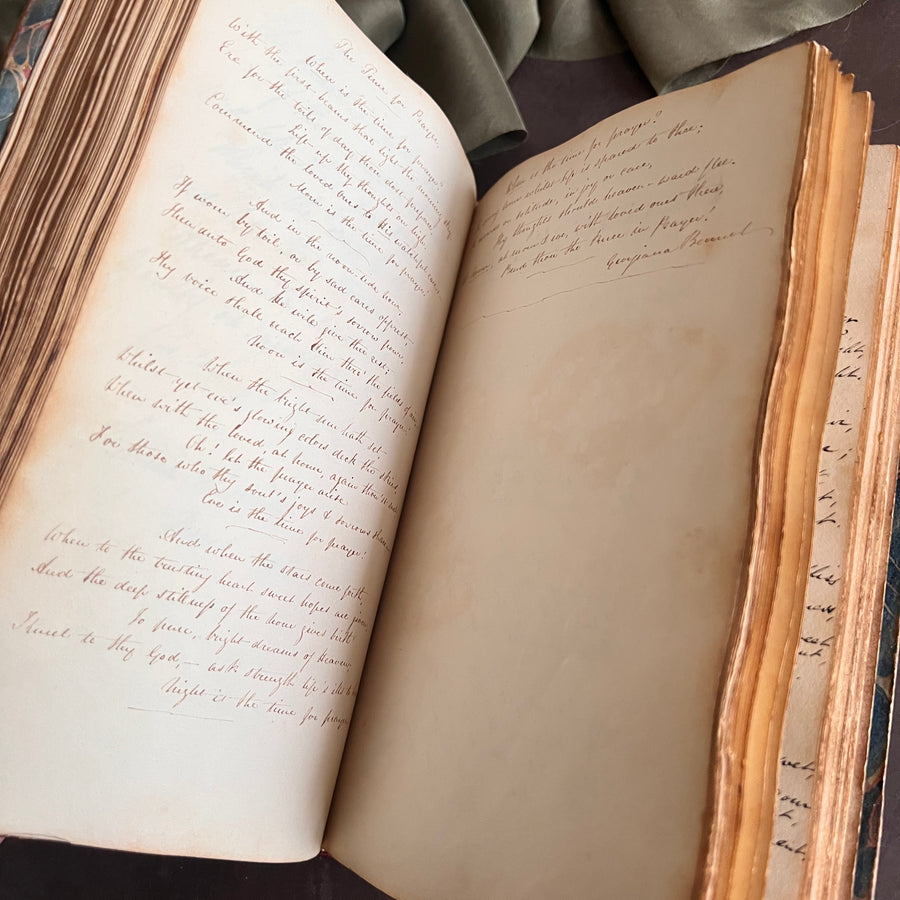 The Time for Prayer
When is the time for prayer?
With the first beams that light the morning sky
Ere for the toils of day thou dost prepare,
Lift up thy thoughts on high,
Commend the loved ones to his watchful care,
Morn is the time for prayer!
And in the noon-tide hour,
If worn by toil, or by sad cares opprest
Then unto God thy spirit's sorrow pour,
And He will give thee rest;
Thy voice shall reach Him thro' the fields of
Noon is the time for prayer!
When the bright sun hath set
Whilst yet eve's glowing colors deck the skies
When with the loved, at home, again
Oh! let the prayer arise
For those who thy soul's joys & sorrows share
Eve is the time for prayer!
And when the stars come forth,
When to the trusting heart sweet hopes are given
And the deep stillness of the hour gives birth
To pure, bright dreams of Heaven
Kneel to thy God, – ask strength life's ills to
Night is the time for prayer
When is the time for prayer?
hour whilst life is spared to thee;
or solitude, in joy or care,
Thy thoughts should heaven-ward flee.
At eve, with loved ones there,
Bend thou the knee in Prayer!
Georgiana Bennet